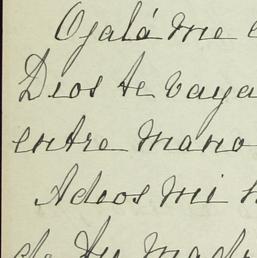 Ojalá me
Dios te vaya
entre mano
Adios mi
de tu madr